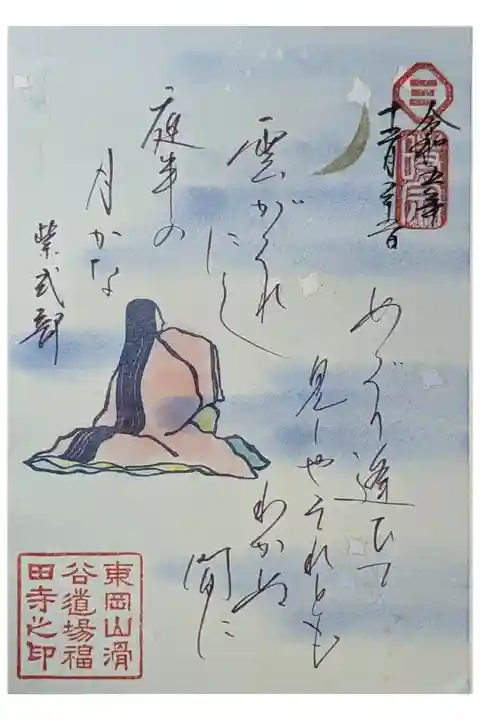 令和五年
十二月
めぐり逢ひて
見しやそれとも
わかぬ
間に
雲がくれ
にし
夜半の
月かな
紫式部
東岡山滑
谷道場福
田寺之印